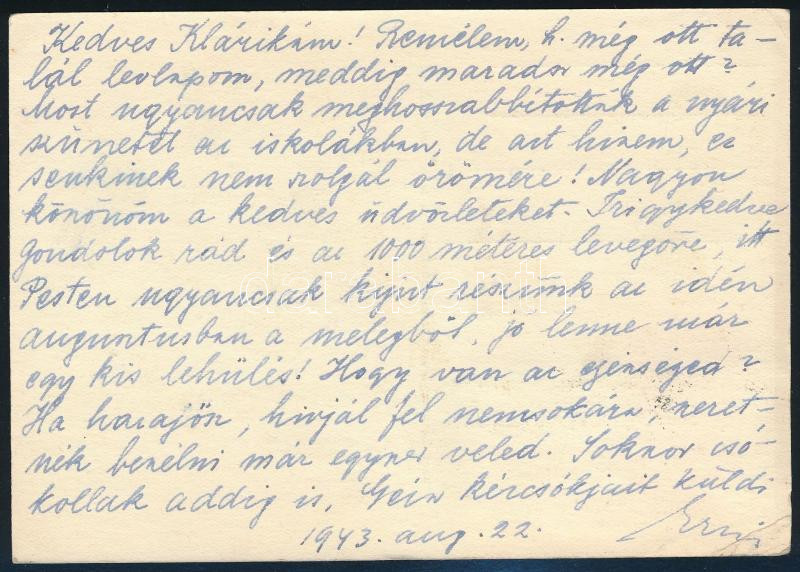 Kedves Klárikám! Remélem, h. még ott ta-
lál levlapom, meddig maradsz még ott?
Most ugyancsak meghosszabbították a nyári
szünetet az iskolákban, de azt hiszem, ez
senkinek nem szolgál örömére! Nagyon
köszönöm a kedves üdvözleteket. Irigykedve
gondolok rád és az 1000 méteres levegőre, itt
Pesten ugyancsak kijut részünk az idén
augusztusban a melegből, jó lenne már
egy kis lehülés! Hogy van az egészséged?
Ha hazajösz, hivjál fel nemsokára, szeret-
nék beszélni már egyszer veled. Sokszor csó-
kollak addig is, kézcsókjait küldi
1943. aug. 22.
darabanth